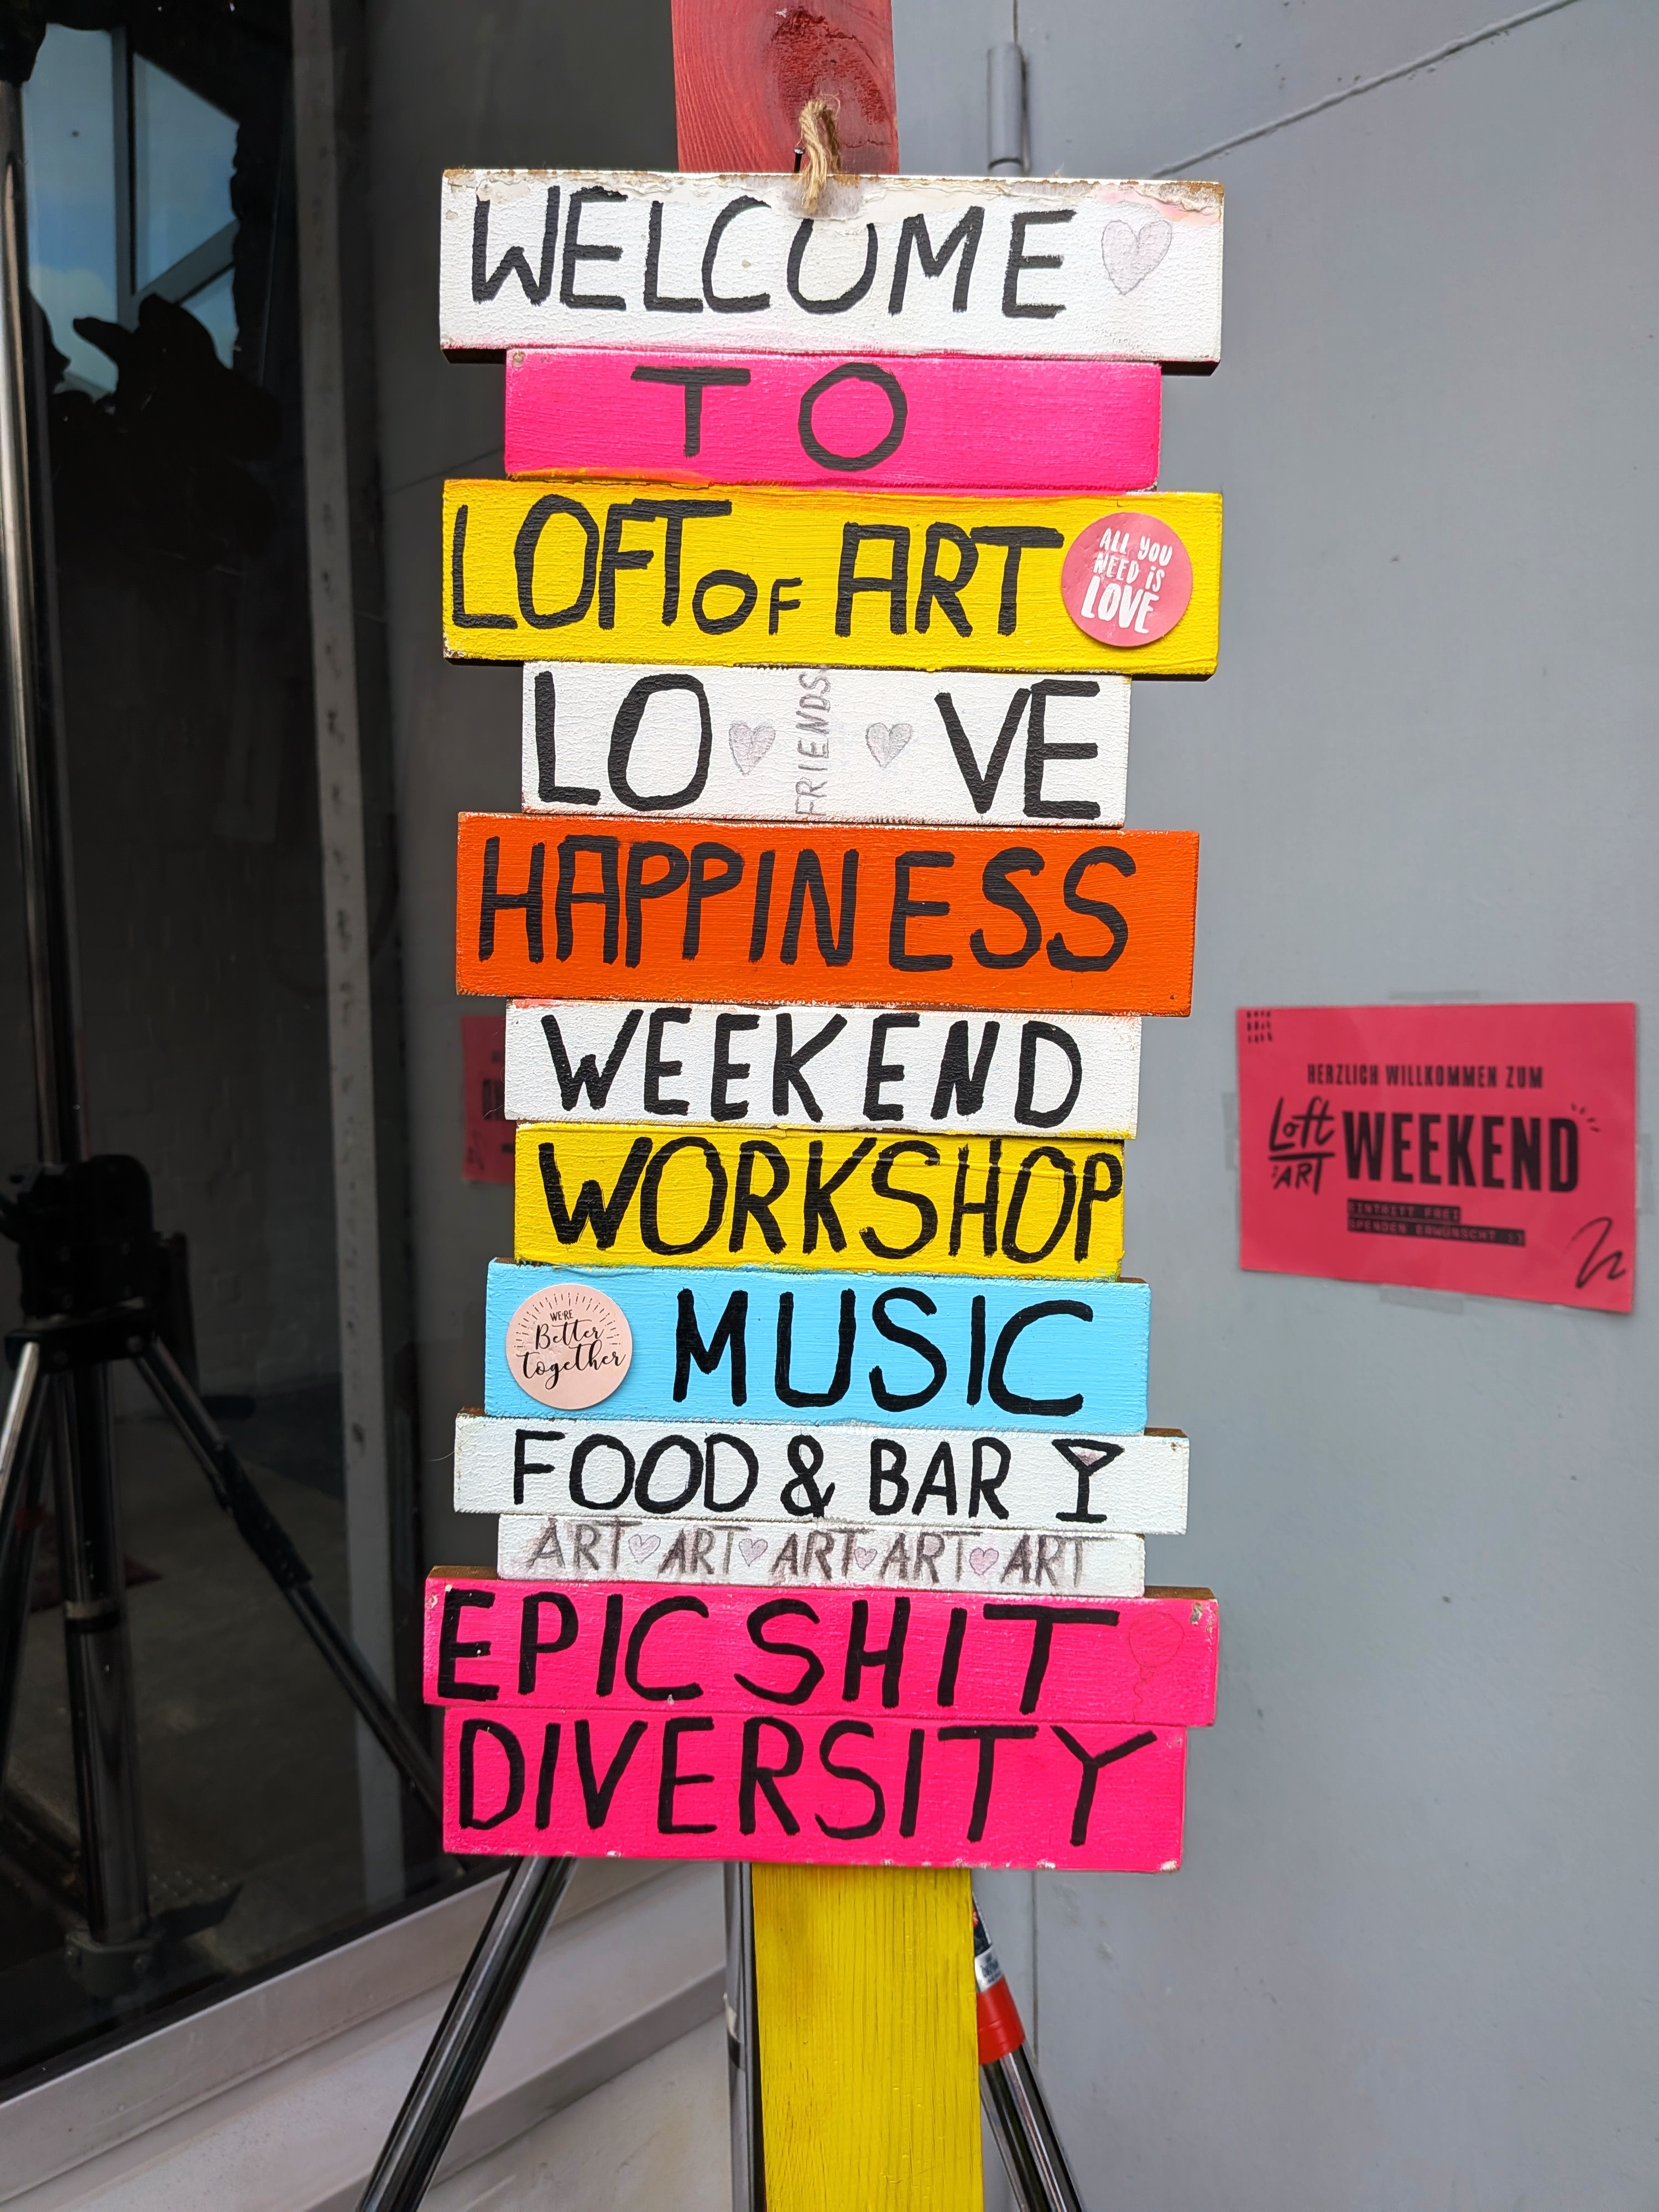 WELCOME
TO
LOFT OF ART
ALL YOU
NEED iS
LOVE
LO FRIENDS VE
HAPPINESS
WEEKEND
WORKSHOP
WE'RE
Better
together
MUSIC
FOOD & BAR
ART ART ART ART ART
EPIC SHIT
DIVERSITY
HERZLICH WILLKOMMEN ZUM
Loft
ART
WEEKEND
EINTRITT FREI
SPENDEN ERWÜNSCHT :)